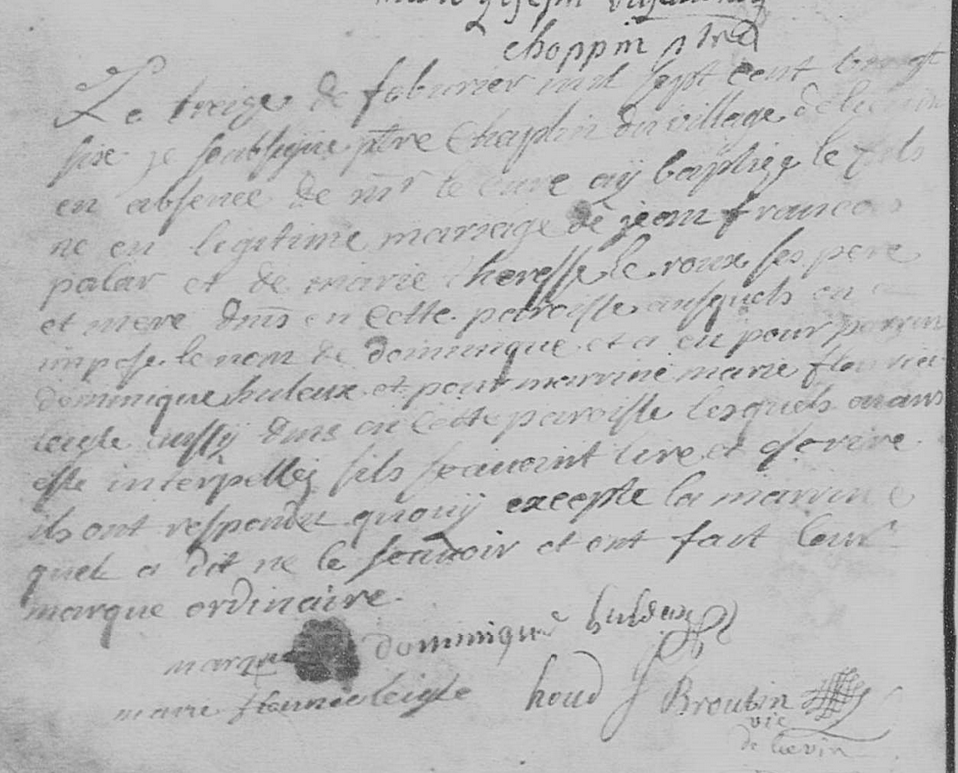 marie
choppin ptre
Le treize de feburier mil sept cent vingt
six je soubsigne ptre Chaplin du village de
en absence de mr le cure aÿ baptize le fils
ne en legitime mariage de jean francois
palar et de marie theresse le roux ses pere
et mere dms en cette paroisse ausquels on a
impose le nom de dominique et a eu pour parrin
dominique huleux et pour marrine marie
leigle aussÿ dms en cette paroisse lesquels aÿans
este interpellez sils scavoint lire et escrire
ils ont respondu quouÿ excepte la marrine
quel a dit ne le scavoir et ont fait leur
marque ordinaire.
marque dominique huleux
marie leigle houd J Broutin
vic
de lievin